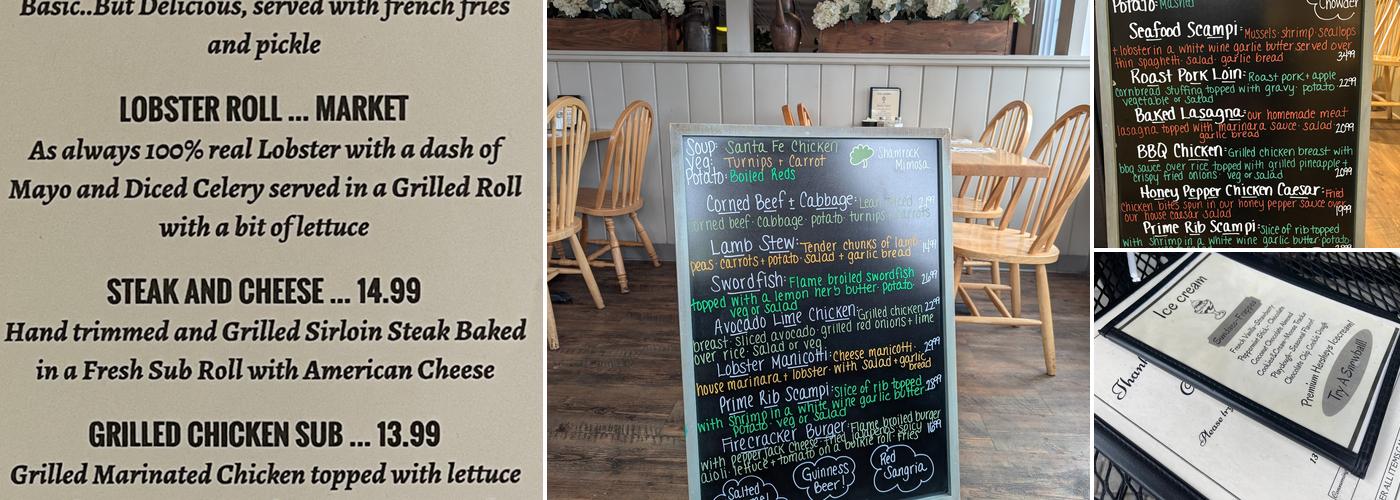 Basic..But Delicious, served with french fries
and pickle
LOBSTER ROLL ... MARKET
As always 100% real Lobster with a dash of
Mayo and Diced Celery served in a Grilled Roll
with a bit of lettuce
STEAK AND CHEESE ... 14.99
Hand trimmed and Grilled Sirloin Steak Baked
in a Fresh Sub Roll with American Cheese
GRILLED CHICKEN SUB ... 13.99
Grilled Marinated Chicken topped with lettuce
Soup: Santa Fe Chicken
Veg: Turnips + Carrot
Potato: Boiled Reds
Shamrock
Mimosa
Corned Beef + Cabbage: Lean
corned beef · cabbage · potato · turnips · carrots
Lamb Stew: Tender chunks of lamb 1499
peas · carrots + potato · salad + garlic bread
Swordfish: Flame broiled swordfish 2699
topped with a lemon herb butter · potato ·
veg or salad
Avocado Lime Chicken: Grilled chicken 2299
breast · sliced avocado · grilled red onions + lime
over rice · salad or veg
Lobster Manicotti: cheese manicotti · 2999
house marinara + lobster · with salad + garlic
bread
Prime Rib Scampi: slice of rib topped 2899
with shrimp in a white wine garlic butter
potato · veg or salad
Firecracker Burger: Flame broiled burger
with pepper jack cheese · fried jalapeños · spicy 1699
aioli · lettuce + tomato on a bulkie roll · fries
Salted
Guinness
Beer!
Red
Sangria
Potato: Mashed
Chowder
Seafood Scampi: Mussels · shrimp · scallops
+ lobster in a white wine garlic butter served over
thin spaghetti · salad · garlic bread 3499
Roast Pork Loin: Roast pork + apple
cornbread stuffing topped with gravy · potato 22.99
vegetable or salad
Baked Lasagna: our homemade meat
lasagna topped with marinara sauce · salad
garlic bread 20.99
BBQ Chicken: Grilled chicken breast with
bbq sauce over rice topped with grilled pineapple +
crispy fried onions · veg or salad 20.99
Honey Pepper Chicken Caesar: Fried
chicken bites spun in our honey pepper sauce over
our house caesar salad 19.99
Prime Rib Scampi: Slice of rib topped
with shrimp in a white wine garlic butter · potato
Ice cream
French Vanilla · Strawberry
Peppermint Stick · Chocolate
Coconut Chocolate Almond
Chocolate Chip Cookie Dough
Premium Hersheys Icecream!
Try A Snowball!
Please try